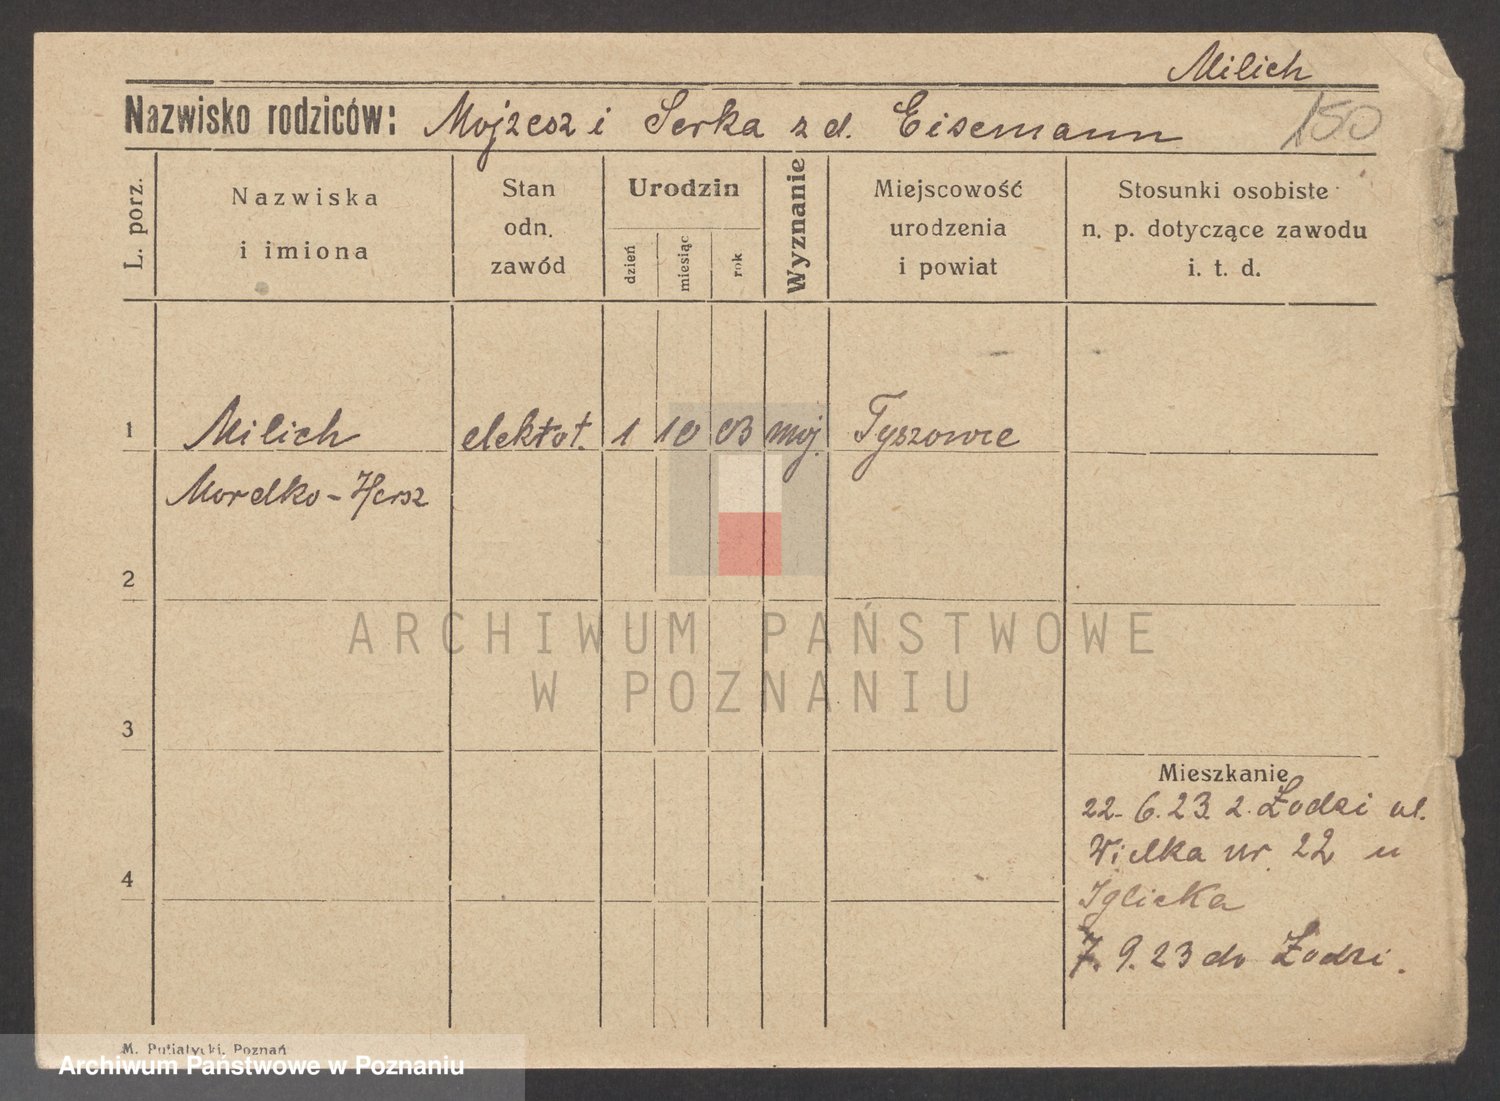 Milich
150
Nazwisko rodziców: Mojzesz i Serka z d. Eisemann
L. porz.
Nazwiska
i imiona
Stan
odn.
zawód
Urodzin
dzień
miesiąc
rok
Wyznanie
Miejscowość
urodzenia
i powiat
Stosunki osobiste
n. p. dotyczące zawodu
i. t. d.
1 Milich elektrot. 1 10 03 moj. Tyszowce
Mordko-Hersz
2
3
4
Mieszkanie
22. 6. 23. z. Łodzi ul.
Wielka nr. 22 u
Iglicka
7. 9. 23 do Łodzi.
ARCHIWUM PAŃSTWOWE
W POZNANIU
M. Putiatycki, Poznań
Archiwum Państwowe w Poznaniu